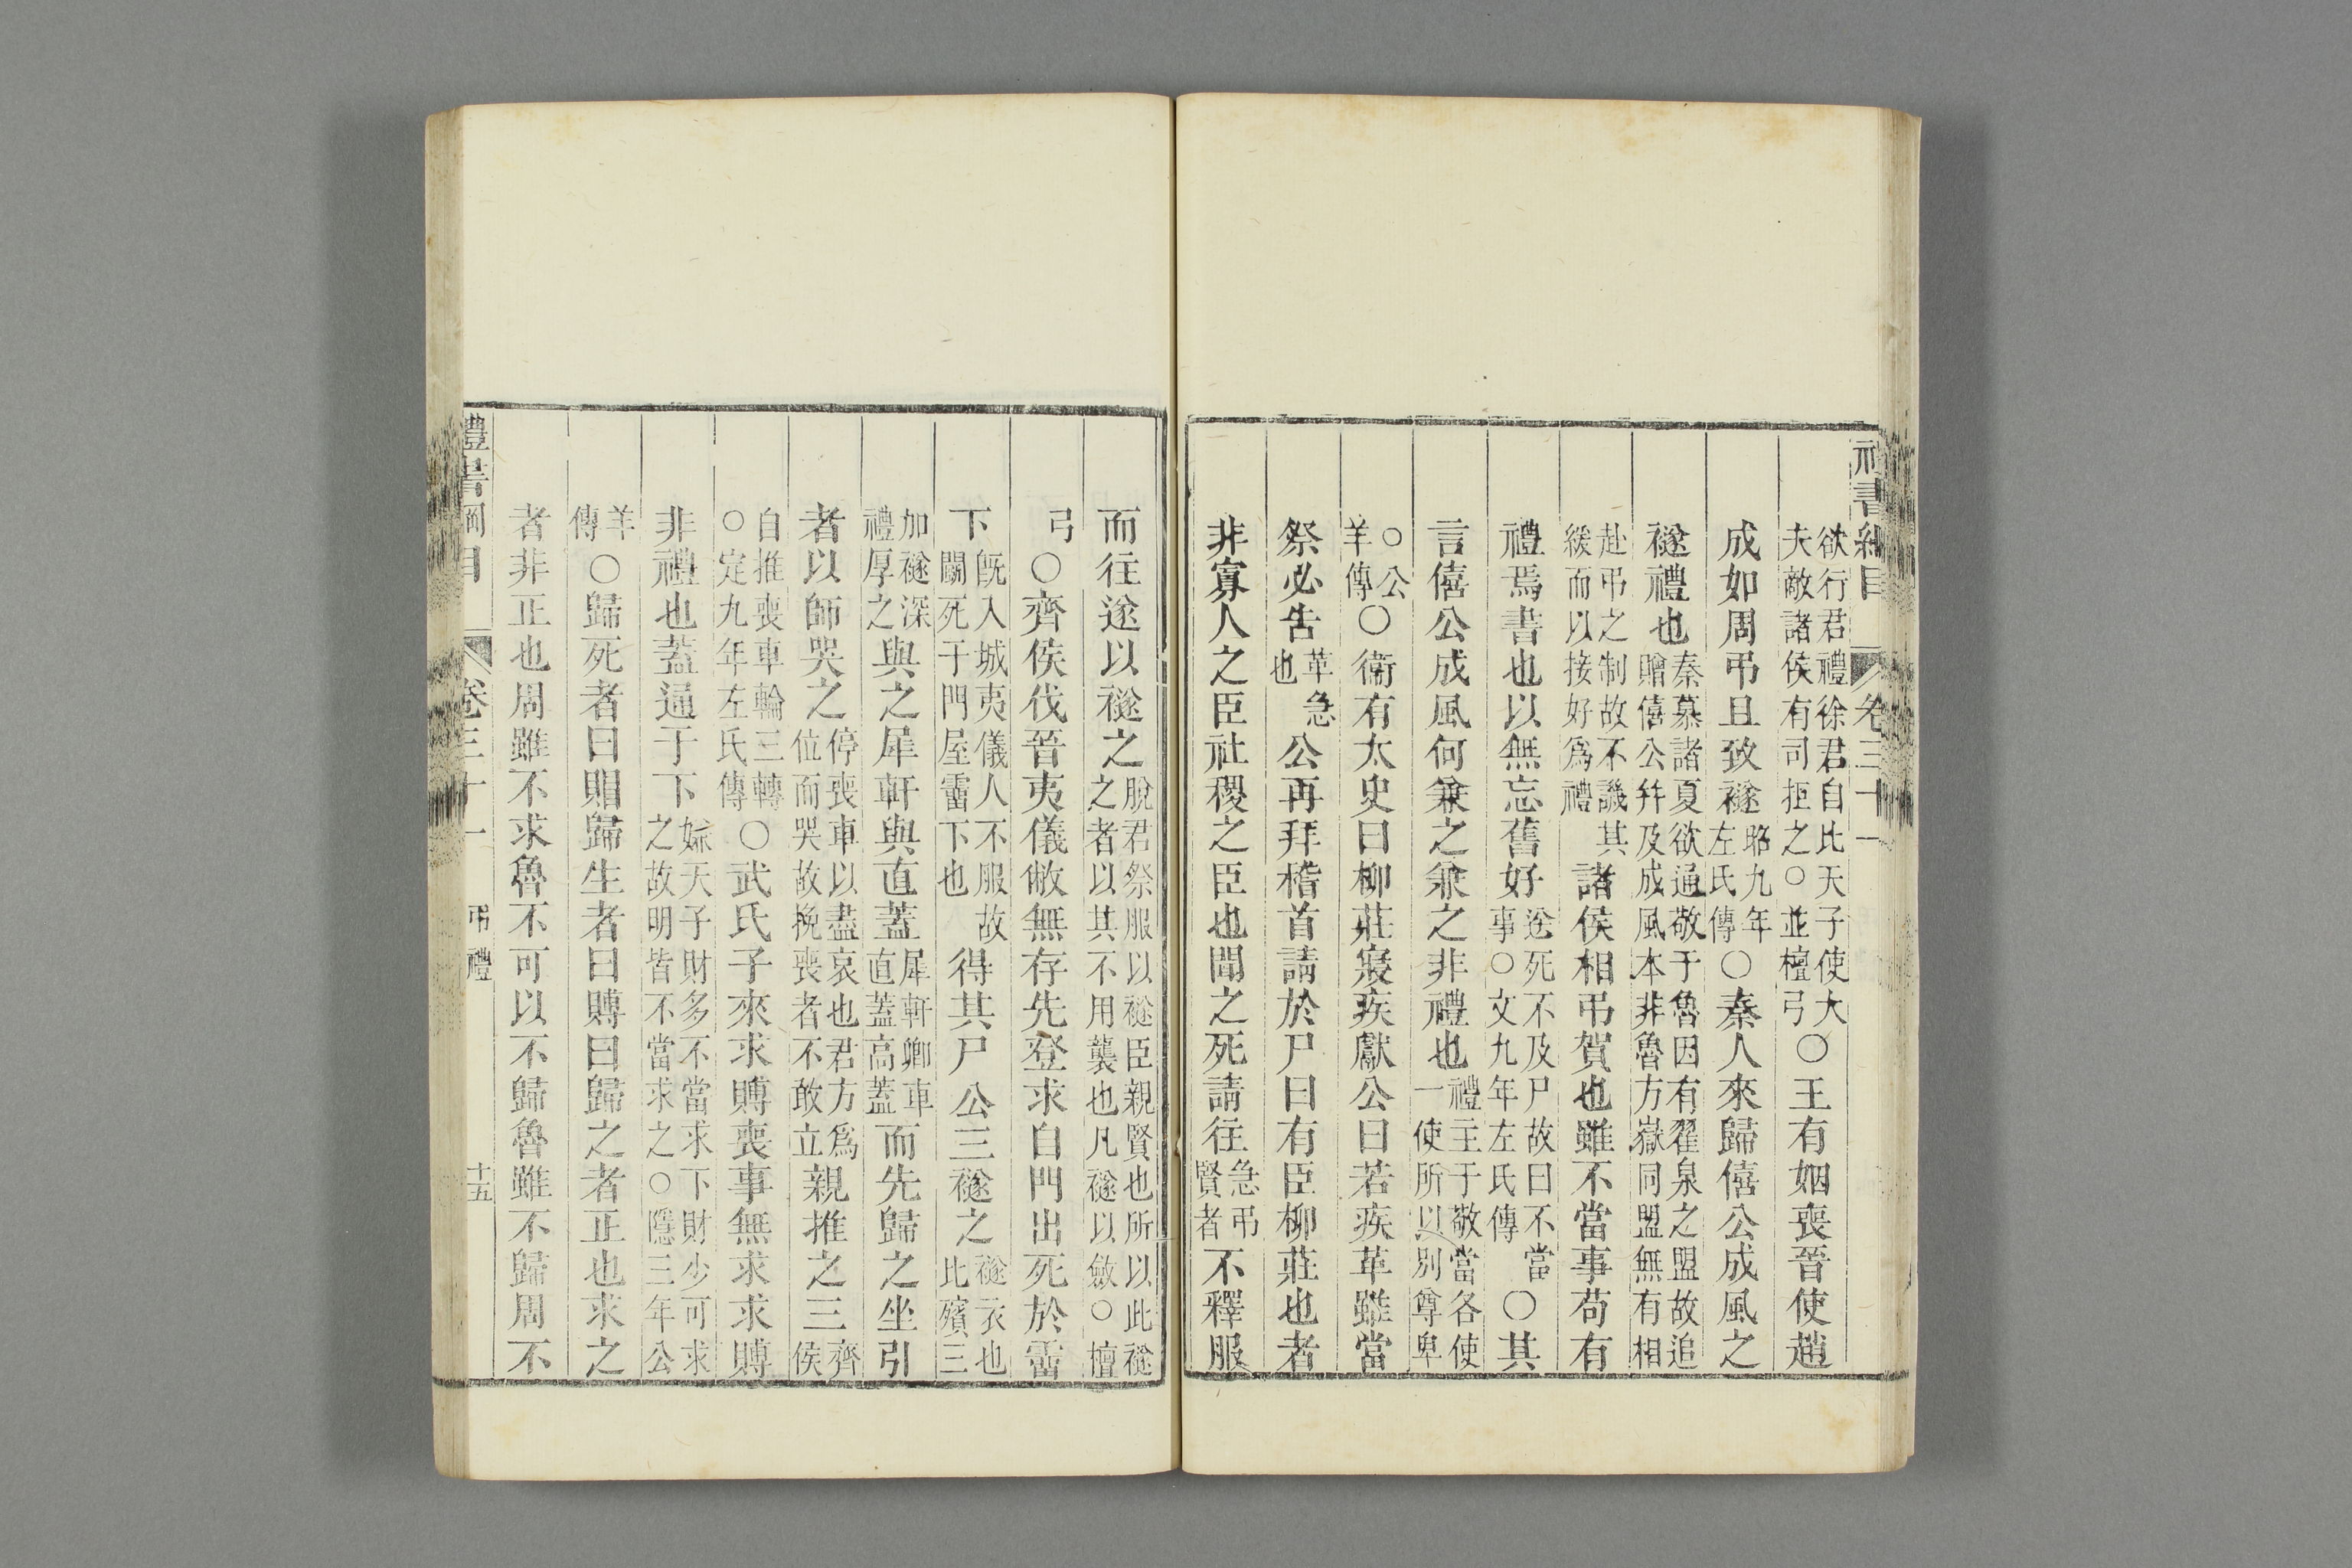 禮書綱目 卷三十一
欲行君禮徐君自比天子使大夫敵諸侯有司拒之○並檀弓○王有姻喪晉使趙
成如周弔且致襚昭九年左氏傳○秦人來歸僖公成風之
襚禮也秦慕諸夏欲通敬于魯因有翟泉之盟故追贈僖公幷及成風本非魯方嶽同盟無有相
赴弔之制故不譏其緩而以接好爲禮諸侯相弔賀也雖不當事苟有
禮焉書也以無忘舊好送死不及尸故曰不當事○文九年左氏傳○其
言僖公成風何兼之兼之非禮也禮主于敬當各使一使所以別尊卑
○公羊傳○衛有太史曰柳莊寢疾獻公曰若疾革雖當
祭必告革急也公再拜稽首請於尸曰有臣柳莊也者
非寡人之臣社稷之臣也聞之死請往急弔賢者不釋服
而往遂以襚之脫君祭服以襚臣親賢也所以此襚之者以其不用襲也凡襚以斂○檀
弓○齊侯伐晉夷儀敝無存先登求自門出死於霤
下既入城夷儀人不服故鬬死于門屋霤下也得其尸公三襚之襚衣也比殯三
加襚深禮厚之與之犀軒與直蓋犀軒卿車直蓋高蓋而先歸之坐引
者以師哭之停喪車以盡哀也君方爲位而哭故挽喪者不敢立親推之三齊侯
自推喪車輪三轉○定九年左氏傳○武氏子來求賻喪事無求求賻
非禮也蓋通于下嫌天子財多不當求下財少可求之故明皆不當求之○隱三年公
羊傳○歸死者曰賵歸生者曰賻曰歸之者正也求之
者非正也周雖不求魯不可以不歸魯雖不歸周不
禮書綱目 卷三十一 弔禮 十五